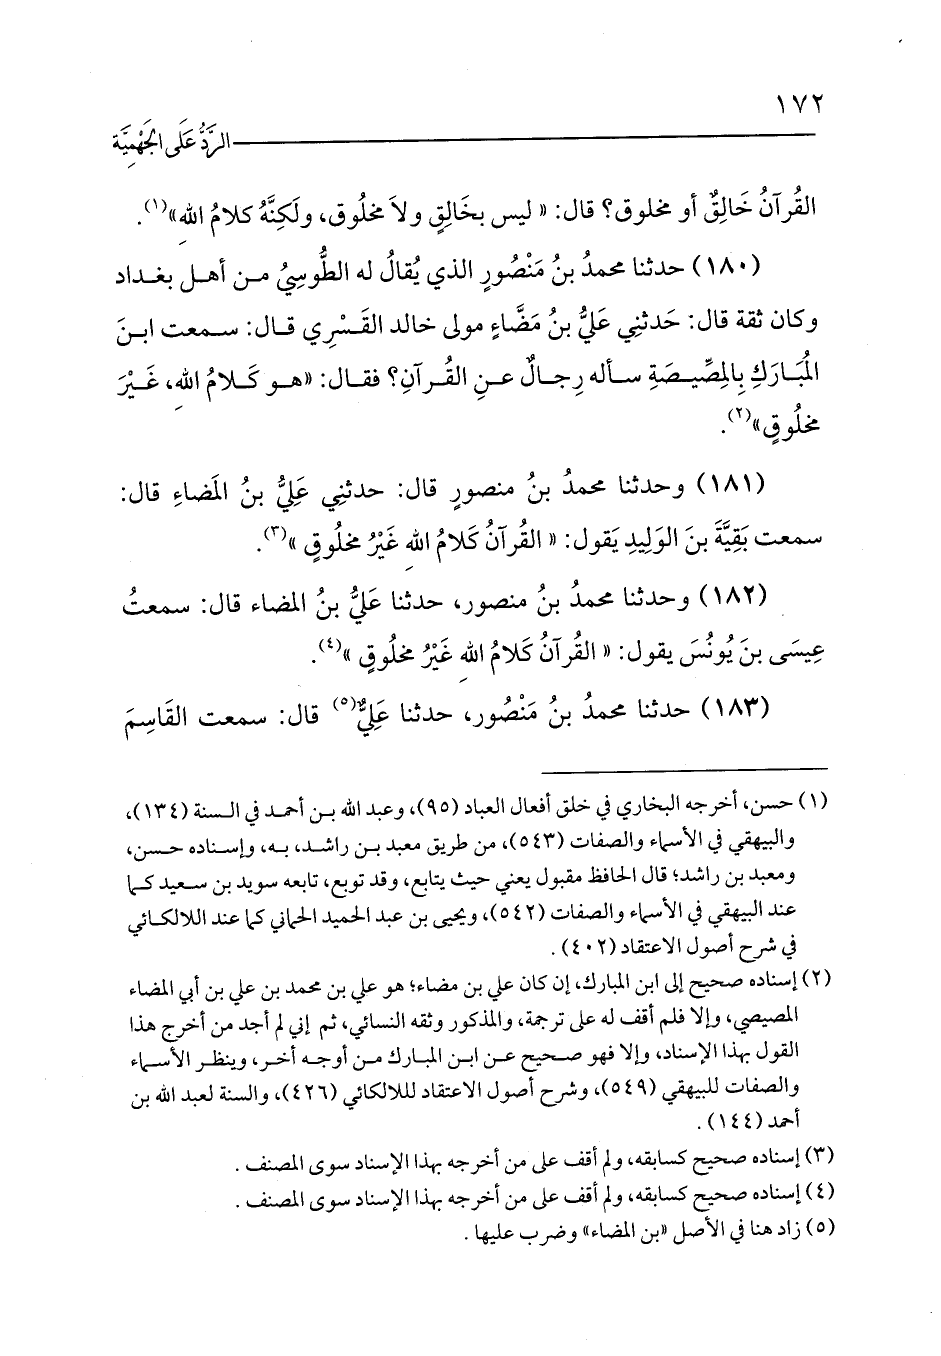 ١٧٢
الرَّدُّ عَلَى الجَهْمِيَّة
القُرآنُ خَالِقٌ أو مخلوق؟ قال: « ليس بخَالِقٍ ولاَ مخلُوق، ولَكِنَّهُ كلامُ اللهِ»(١).
(١٨٠) حدثنا محمدُ بنُ مَنْصُورٍ الذي يُقالُ له الطُّوسِيُ مـن أهـل بغـداد
وكان ثقة قال: حَدثنِي عَليُّ بنُ مَضَّاءٍ مولى خالد القَسْرِي قـال: سـمعت ابـنَ
المُبَارَكِ بِالمِصِّيـصَةِ سـأله رِجـالٌ عـنِ القُـرآنِ؟ فقـال: «هـو كَـلامُ اللهِ، غَـيْرَ
مخلُوقٍ»(٢).
(١٨١) وحدثنا محمدُ بنُ منصورٍ قال: حدثنِي عَلِيُّ بنُ المَضاءِ قال:
سمعت بَقِيَّةَ بنَ الوَلِيدِ يَقول: « القُرآنُ كَلامُ اللهِ غَيْرُ مخلُوقٍ »(٣).
(١٨٢) وحدثنا محمدُ بنُ منصور، حدثنا عَليُّ بنُ المضاء قال: سمعتُ
عِيسَى بنَ يُونُسَ يقول: « القُرآنُ كَلامُ اللهِ غَيْرُ مخلُوقٍ »(٤).
(١٨٣) حدثنا محمدُ بنُ مَنْصُور، حدثنا عَلِيٌّ(٥) قال: سمعت القَاسِمَ
(١) حسن، أخرجه البخاري في خلق أفعال العباد (٩٥)، وعبد الله بـن أحمـد في الـسنة (١٣٤)،
والبيهقي في الأسماء والصفات (٥٤٣)، من طريق معبد بـن راشـد، بـه، وإسـناده حـسن،
ومعبد بن راشد؛ قال الحافظ مقبول يعني حيث يتابع، وقد توبع، تابعه سويد بن سـعيد كـما
عند البيهقي في الأسماء والصفات (٥٤٢)، ويحيى بن عبد الحميد الحماني كما عند اللالكـائي
في شرح أصول الاعتقاد (٤٠٢) .
(٢) إسناده صحيح إلى ابن المبارك، إن كان علي بن مضاء؛ هو علي بن محمد بن علي بن أبي المضاء
المصيصي، وإلا فلم أقف له على ترجمة، والمذكور وثقه النسائي، ثم إني لم أجد من أخرج هذا
القول بهذا الإسناد، وإلا فهو صـحيح عـن ابـن المبـارك مـن أوجـه أخـر، وينظـر الأسـماء
والصفات للبيهقي (٥٤٩)، وشرح أصول الاعتقاد للالكائي (٤٢٦)، والسنة لعبد الله بن
أحمد (١٤٤) .
(٣) إسناده صحيح كسابقه، ولم أقف على من أخرجه بهذا الإسناد سوى المصنف .
(٤) إسناده صحيح كسابقه، ولم أقف على من أخرجه بهذا الإسناد سوى المصنف .
(٥) زاد هنا في الأصل «بن المضاء» وضرب عليها .